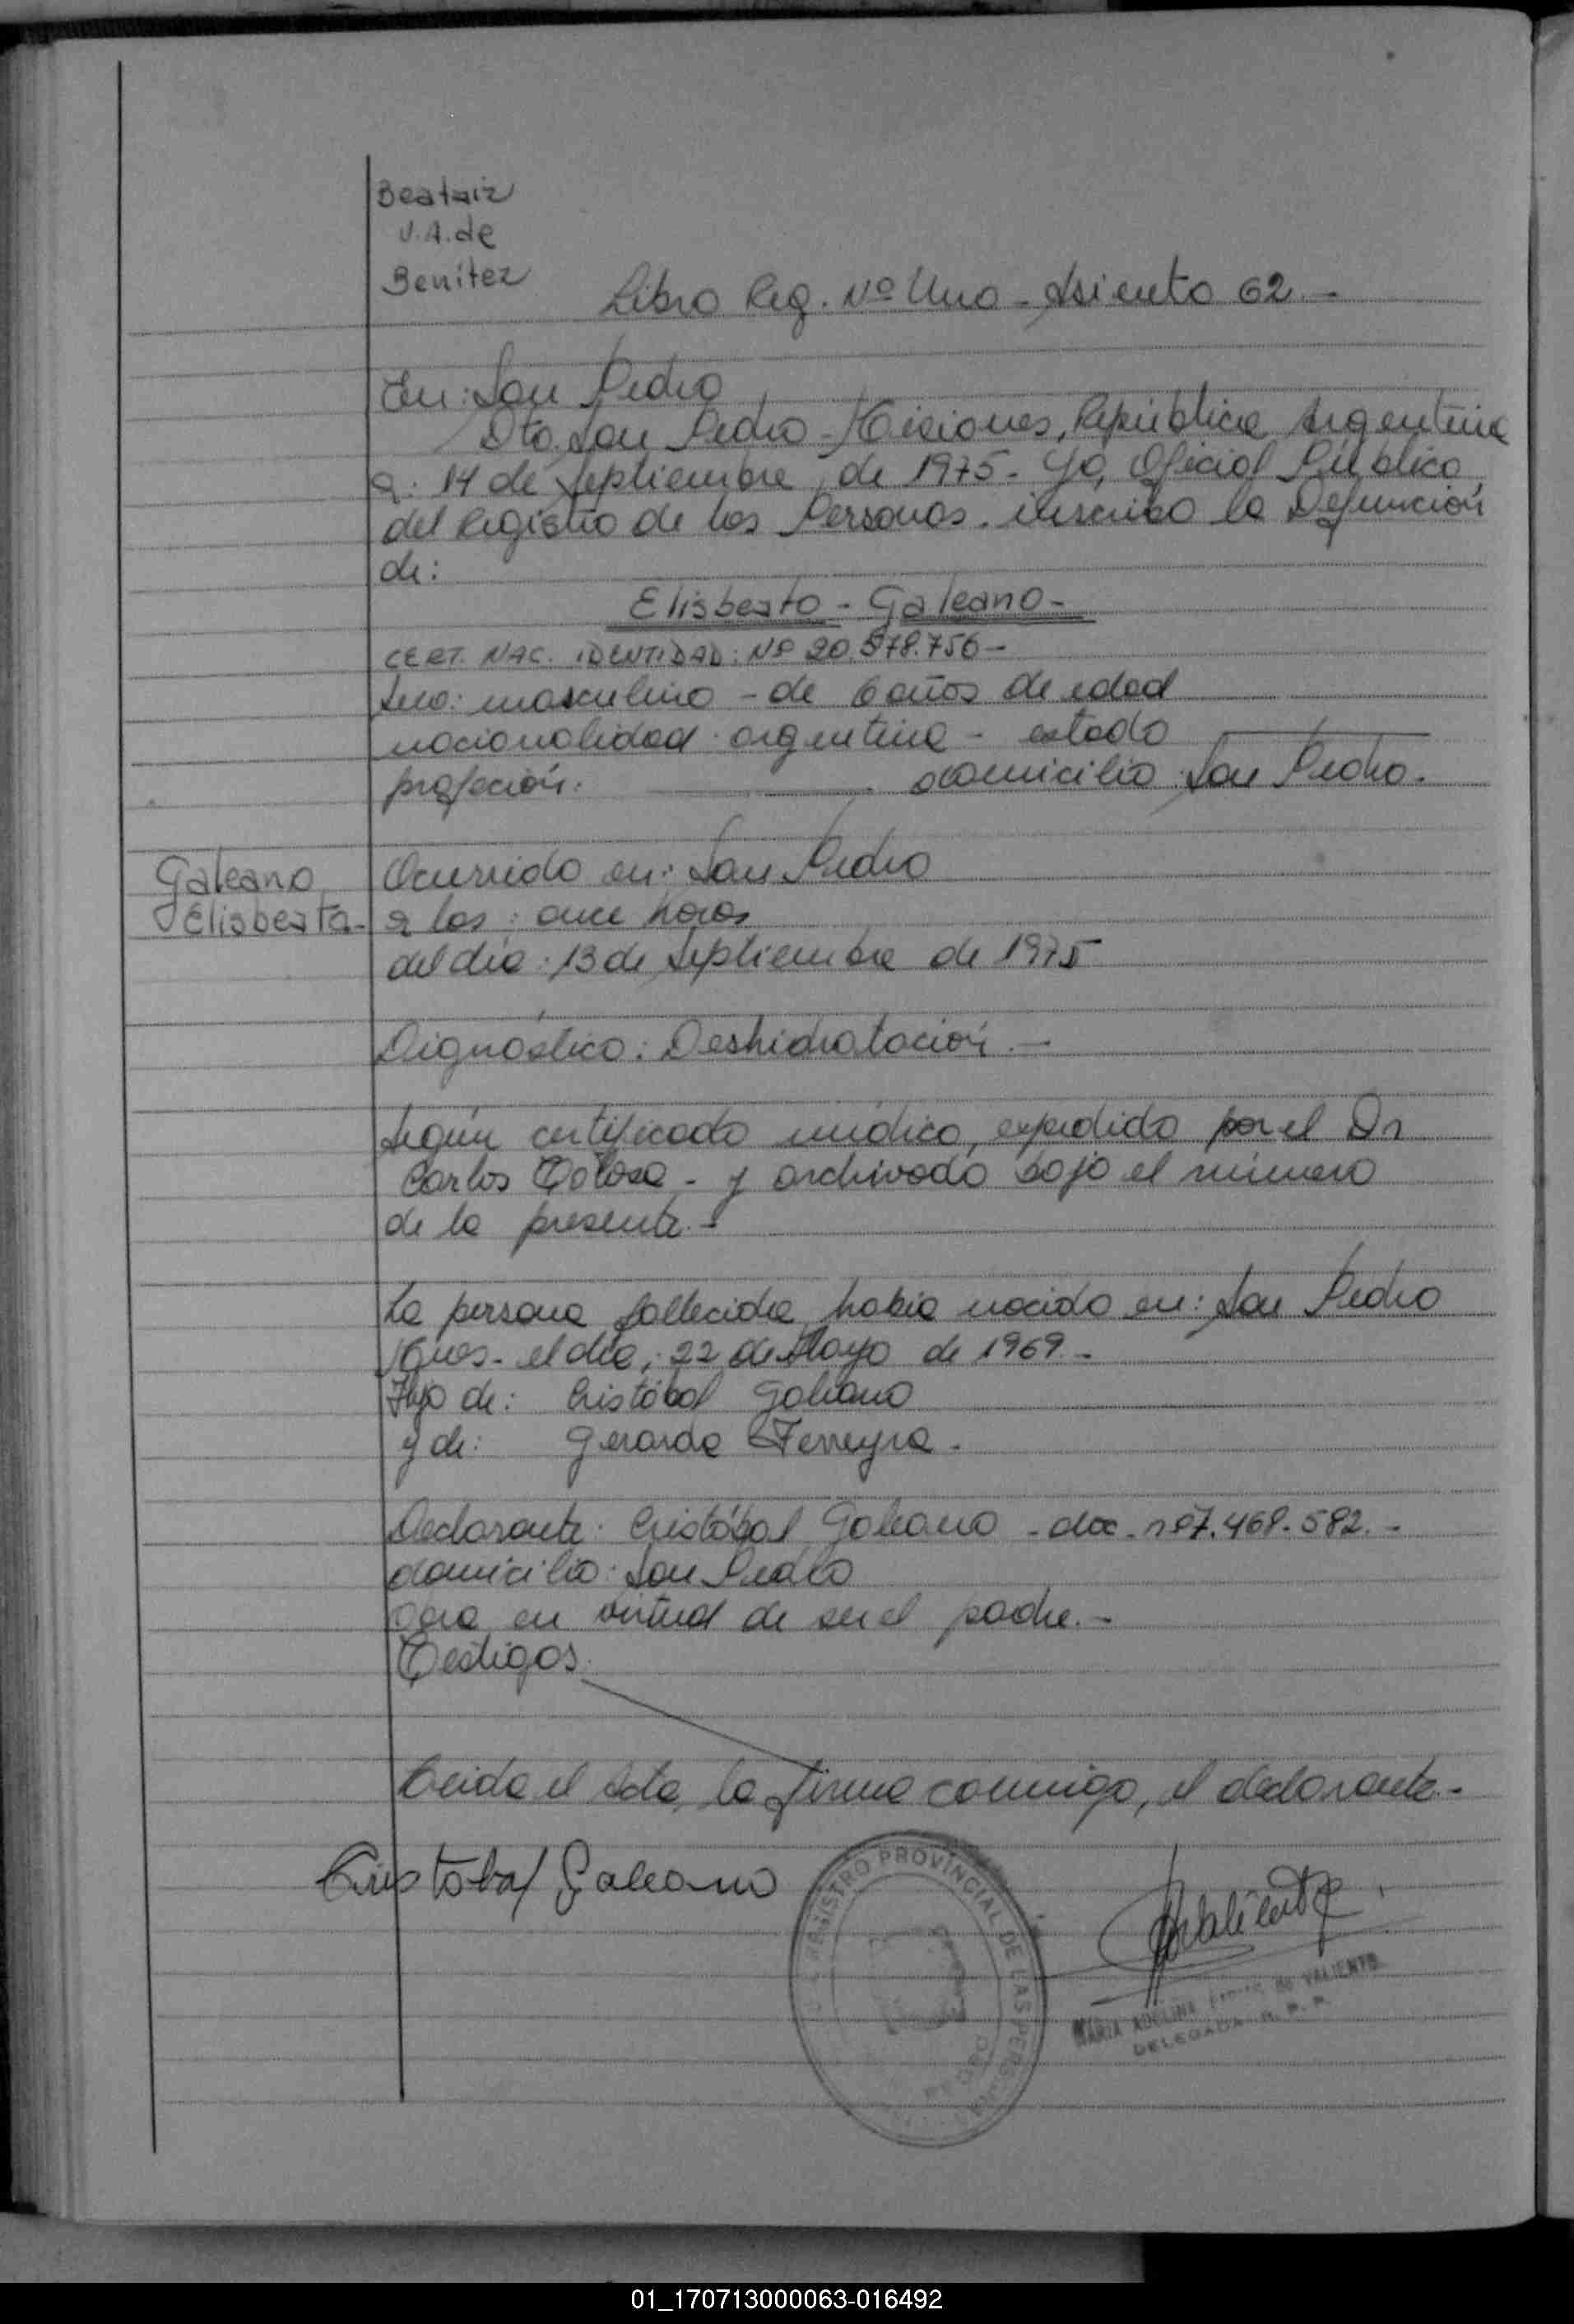 Beatriz
V.A. de
Benítez
Libro Reg. Nº Uno - Asiento 62.-
En: San Pedro
Dto. San Pedro - Misiones, República Argentina
a: 14 de Septiembre, de 1975 - Yo, Oficial Público,
del Registro de las Personas. inscribo la Defunción
de:
Elisberto - Galeano -
CERT. NAC. IDENTIDAD: Nº 20.578.756 -
Sexo: masculino - de 6 años de edad
nacionalidad argentina - estado
profeción: domicilio: San Pedro.
Galeano
Elisberta -
Ocurrido en: San Pedro
a las: once horas
del día: 13 de Septiembre de 1975
Dignóstico: Deshidratación. -
Según certificado médico, expedido por el Dr
Carlos Tolosa - y archivado bajo el número
de la presente. -
La persona fallecida había nacido en: San Pedro
Mnes - el día: 22 de Mayo de 1969. -
Hijo de: Cristóbal Galeano
y de: Gerarda Ferreyra.
Declarante: Cristóbal Galeano - doc - nº 7.468.582. -
domicilio: San Pedro
obra en virtud de ser el padre. -
Testigos:
Leida el Acta, la firma conmigo, el declarante. -
Cristobal Galeano
REGISTRO PROVINCIAL DE LAS PERSONAS
PEDRO
MARIA ADELINA DE VALIENTE
DELEGADA R. P. P.
01_170713000063-016492